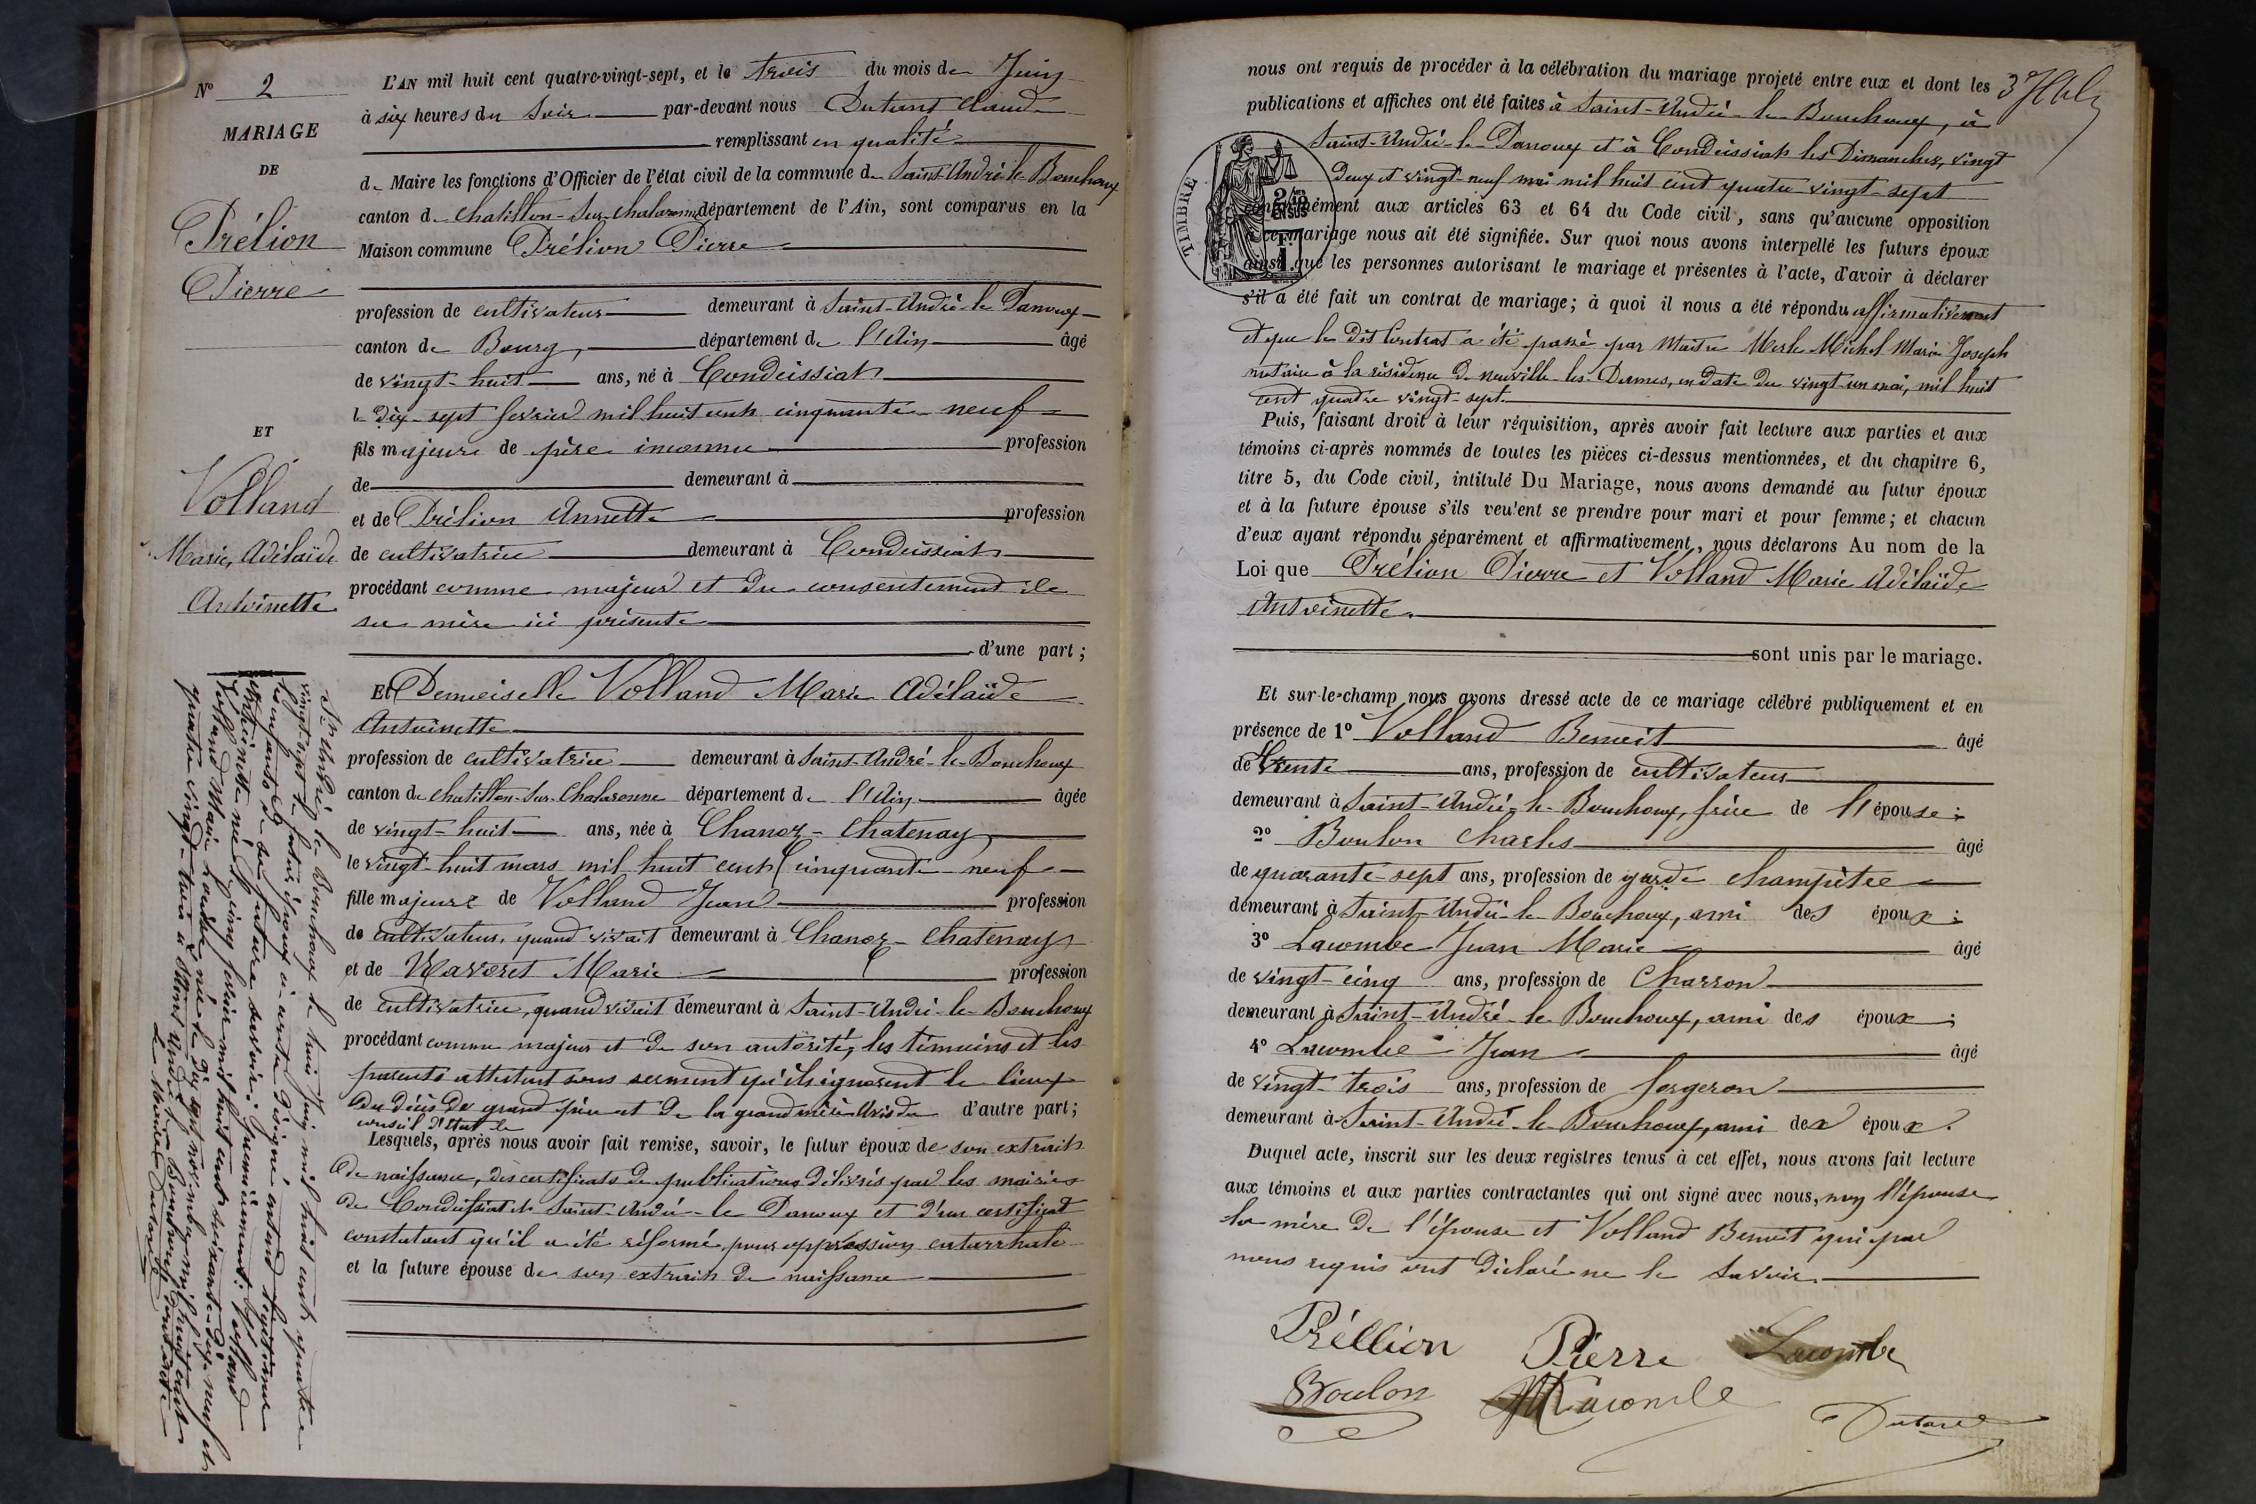 N° 2
MARIAGE
DE
Prélion
Pierre
ET
Volland
Marie, Adélaïde
Antoinette
L'AN mil huit cent quatre-vingt-sept, et le trois du mois de Juin
à six heures du Soir par-devant nous Dutant Claude
remplissant en qualité
de Maire les fonctions d'Officier de l'état civil de la commune de Saint-André-le-Bouchoux
canton de Chatillon-Sur-Chalaronne département de l'Ain, sont comparus en la
Maison commune Prélion Pierre
profession de cultivateur demeurant à Saint-André-le-Panoux
canton de Bourg, département de l'Ain âgé
de vingt-huit ans, né à Condeissiat
le dix-sept fevrier mil huit cent cinquante-neuf
fils majeur de père inconnu profession
de demeurant à
et de Prélion Annette profession
de cultivatrice demeurant à Condeissiat
procédant comme majeur et du consentement de
sa mère ici présente
d'une part ;
Et Demoiselle Volland Marie Adélaïde
Antoinette
profession de cultivatrice demeurant à Saint-André-le-Bouchoux
canton de Chatillon-Sur-Chalaronne département de l'Ain âgée
de vingt-huit ans, née à Chanoz-Chatenay
le vingt-huit mars mil huit cent cinquante-neuf
fille majeure de Volland Jean profession
de cultivateur, quand vivait demeurant à Chanoz-Chatenay
et de Ravoret Marie profession
de cultivatrice, quand vivait demeurant à Saint-André-le-Bouchoux
procédant comme majeur et de son autorité, les témoins et les
parents attestant sous serment qu'ils ignorent le lieux
du décès du grand père et de la grand mère Avis du d'autre part ;
conseil d'Etat le
Lesquels, après nous avoir fait remise, savoir, le futur époux de son extrait
de naissance, des certificats de publications délivrés par les mairies
de Condeissiat et Saint-André-le-Panoux et d'un certificat
constatant qu'il a été réformé pour oppression catarrhale
et la future épouse de son extrait de naissance
St André le Bouchoux le trois Juin mil huit cent quatre
vingt sept le futur époux ci-contre désigné entend légitimer
les enfants de sa future savoir : premièrement : Volland
né le cinq février mil huit cent soixante-dix-neuf et
Volland Marie née le dix sept novembre mil huit cent
quatre vingt-trois à Saint André le Bouchoux
Le Maire Dutant
3e
nous ont requis de procéder à la célébration du mariage projeté entre eux et dont les
publications et affiches ont été faites à Saint-André-le-Bouchoux, à
Saint-André-le-Panoux et à Condeissiat les Dimanches, vingt
deux et vingt-neuf mai mil huit cent quatre-vingt-sept
conformément aux articles 63 et 64 du Code civil, sans qu'aucune opposition
à ce mariage nous ait été signifiée. Sur quoi nous avons interpellé les futurs époux
ainsi que les personnes autorisant le mariage et présentes à l'acte, d'avoir à déclarer
s'il a été fait un contrat de mariage ; à quoi il nous a été répondu affirmativement
et que le dit Contrat a été passé par Maitre Merle Michel Marie Joseph
notaire à la résidence de Neuville-les-Dames, en date du vingt-un mai, mil huit
cent quatre vingt sept.
TIMBRE
2/10
EN SUS
Puis, faisant droit à leur réquisition, après avoir fait lecture aux parties et aux
témoins ci-après nommés de toutes les pièces ci-dessus mentionnées, et du chapitre 6,
titre 5, du Code civil, intitulé Du Mariage, nous avons demandé au futur époux
et à la future épouse s'ils veulent se prendre pour mari et pour femme ; et chacun
d'eux ayant répondu séparément et affirmativement, nous déclarons Au nom de la
Loi que Prélion Pierre et Volland Marie Adélaïde
Antoinette.
sont unis par le mariage.
Et sur-le-champ nous avons dressé acte de ce mariage célébré publiquement et en
présence de 1° Volland Benoit âgé
de trente ans, profession de cultivateur
demeurant à Saint-André-le-Bouchoux, frère de l'épouse ;
2° Boulon Charles âgé
de quarante-sept ans, profession de garde champêtre
demeurant à Saint-André-le-Bouchoux, ami des époux ;
3° Lacombe Jean Marie âgé
de vingt-cinq ans, profession de Charron
demeurant à Saint-André-le-Bouchoux, ami des époux ;
4° Lacombe Jean âgé
de vingt-trois ans, profession de forgeron
demeurant à Saint-André-le-Bouchoux, ami des époux.
Duquel acte, inscrit sur les deux registres tenus à cet effet, nous avons fait lecture
aux témoins et aux parties contractantes qui ont signé avec nous, non l'épouse
la mère de l'épouse et Volland Benoit qui par
nous requis ont déclaré ne le savoir.
Préllion Pierre Lacombe
Boulon Lacombe
Dutant